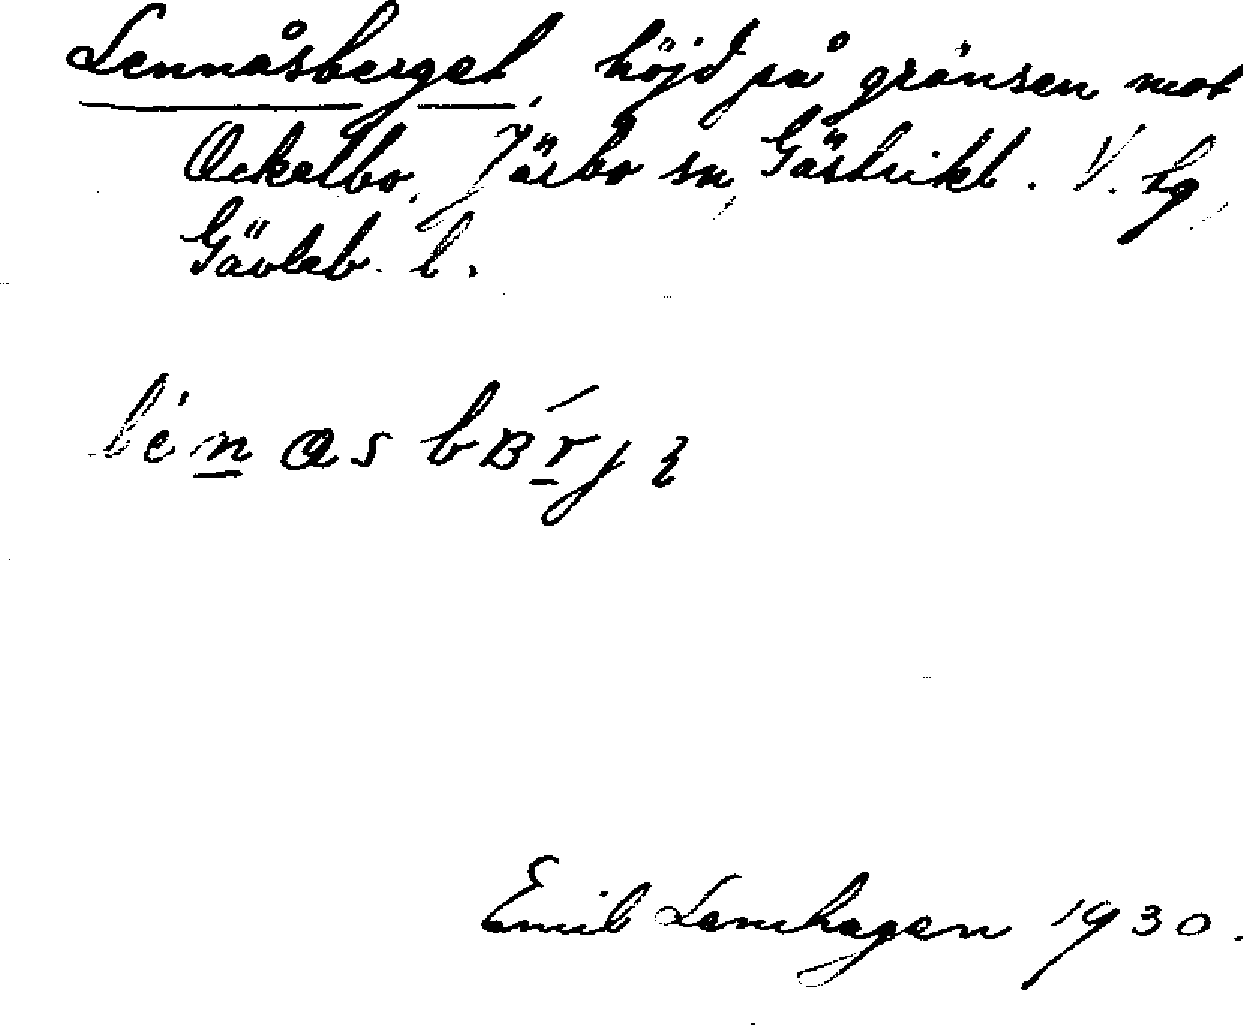 Lennåsberget, höjd på gränsen mot
Ockelbo, Järbo sn, Gästrikl. V. tg,
Gävleb. l.
Emil Lenhagen 1930.